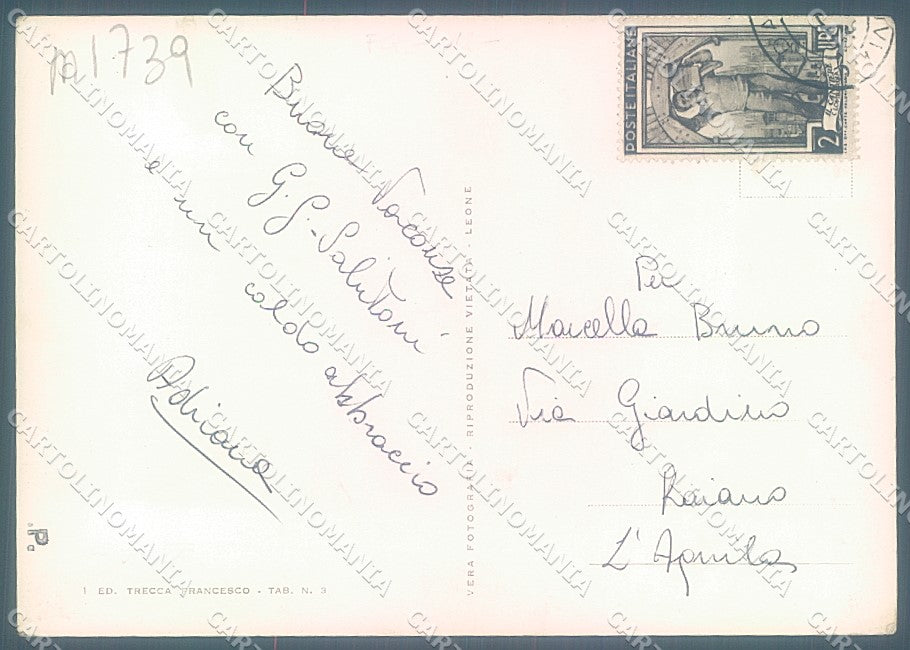 p1739
Buone Vacanze
con G.G. Salutoni
e un
caldo abbraccio
Adriana
1 ED. TRECCA FRANCESCO - TAB. N. 3
VERA FOTOGRAFIA - RIPRODUZIONE VIETATA - LEONE
POSTE ITALIANE
2
Per
Marcella Bruno
Via Giardino
Raiano
L'Aquila
CARTOLINOMANIA